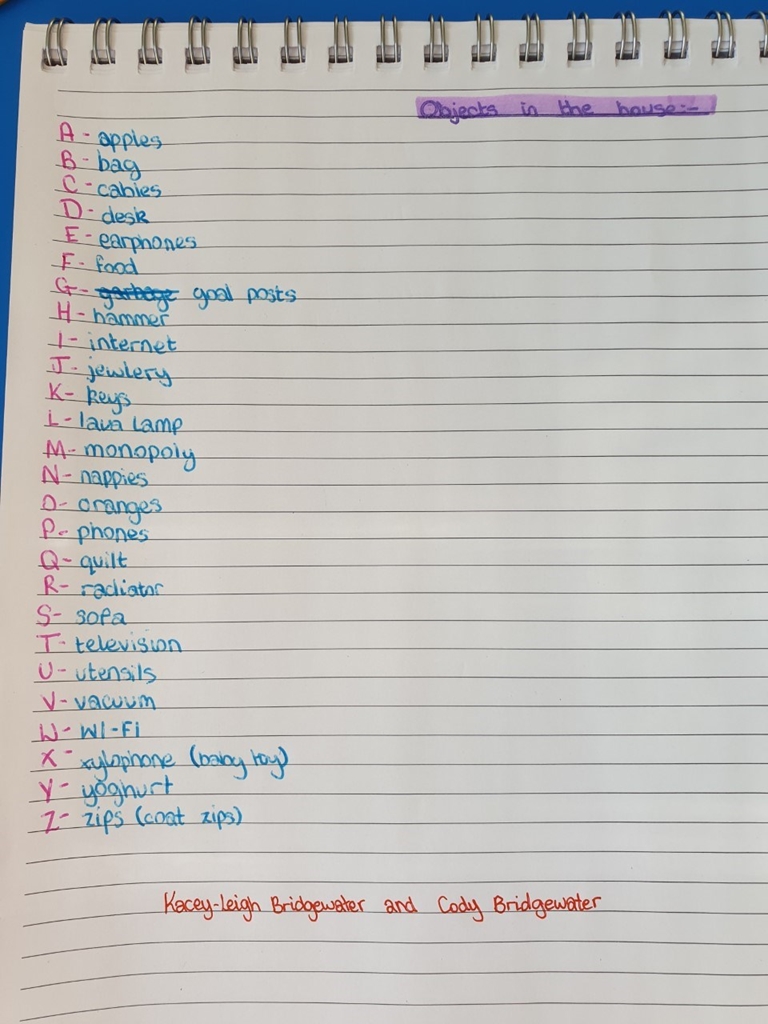 Objects in the house:-
A - apples
B - bag
C - cables
D - desk
E - earphones
F - food
G - garbage goal posts
H - hammer
I - internet
J - jewlery
K - keys
L - lava lamp
M - monopoly
N - nappies
O - oranges
P - phones
Q - quilt
R - radiator
S - sofa
T - television
U - utensils
V - vacuum
W - Wi-Fi
X - xylophone (baby toy)
Y - yoghurt
Z - zips (coat zips)
Kacey-Leigh Bridgewater and Cody Bridgewater